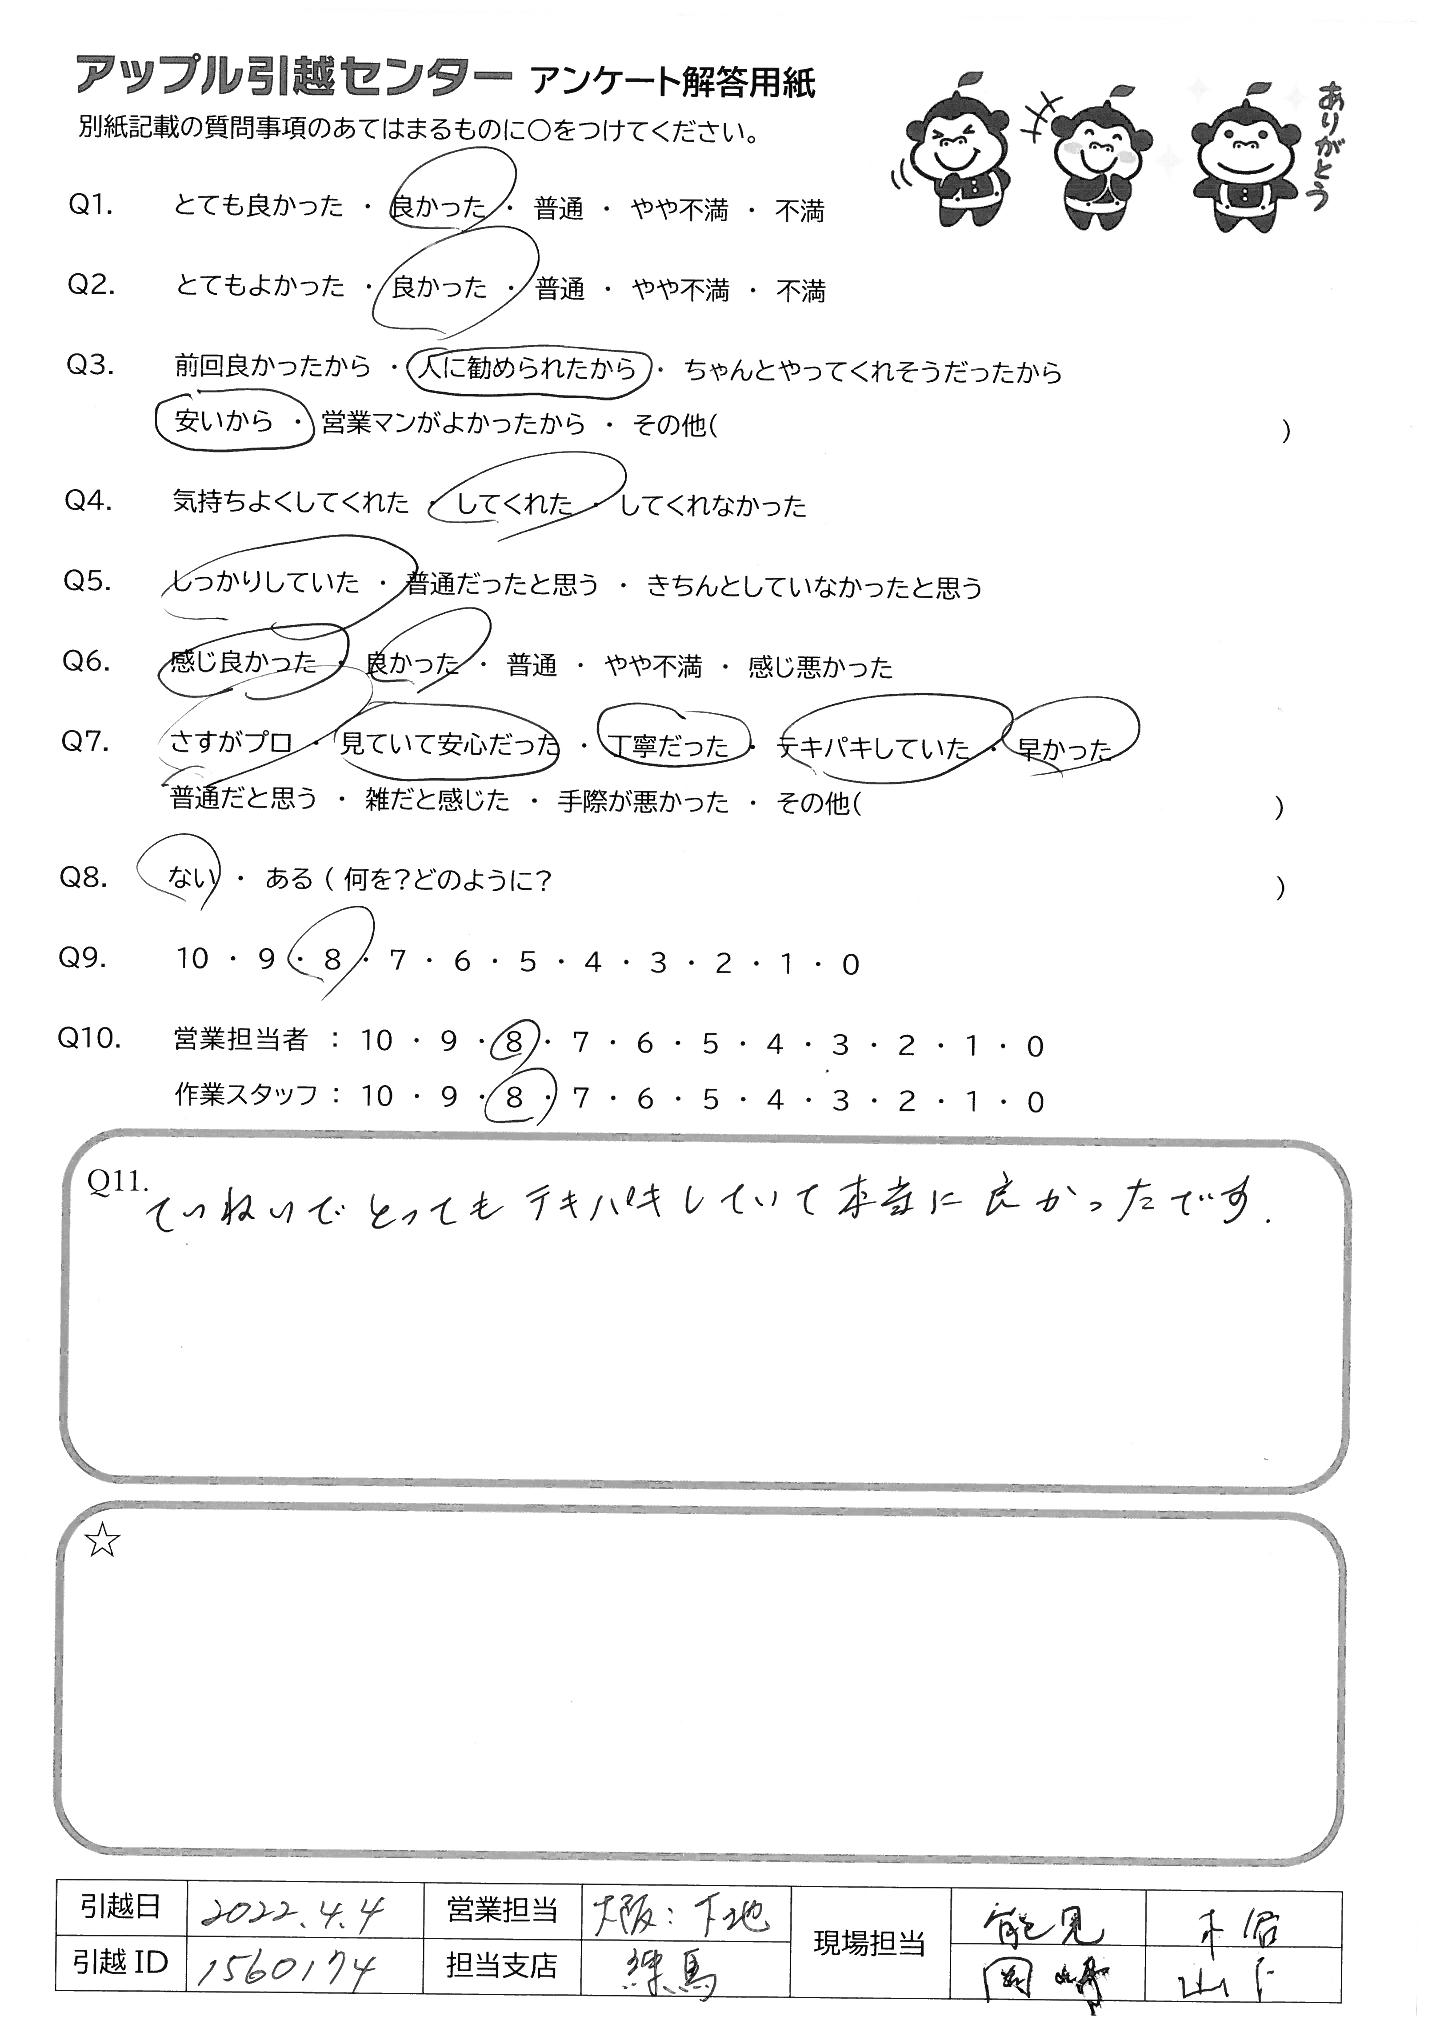 アップル引越センター アンケート解答用紙
別紙記載の質問事項のあてはまるものに○をつけてください。
ありがとう
Q1. とても良かった ・ 良かった ・ 普通 ・ やや不満 ・ 不満
Q2. とてもよかった ・ 良かった ・ 普通 ・ やや不満 ・ 不満
Q3. 前回良かったから ・ 人に勧められたから ・ ちゃんとやってくれそうだったから
安いから ・ 営業マンがよかったから ・ その他( )
Q4. 気持ちよくしてくれた ・ してくれた ・ してくれなかった
Q5. しっかりしていた ・ 普通だったと思う ・ きちんとしていなかったと思う
Q6. 感じ良かった ・ 良かった ・ 普通 ・ やや不満 ・ 感じ悪かった
Q7. さすがプロ ・ 見ていて安心だった ・ 丁寧だった ・ テキパキしていた ・ 早かった
普通だと思う ・ 雑だと感じた ・ 手際が悪かった ・ その他( )
Q8. ない ・ ある ( 何を?どのように? )
Q9. 10 ・ 9 ・ 8 ・ 7 ・ 6 ・ 5 ・ 4 ・ 3 ・ 2 ・ 1 ・ 0
Q10. 営業担当者 : 10 ・ 9 ・ 8 ・ 7 ・ 6 ・ 5 ・ 4 ・ 3 ・ 2 ・ 1 ・ 0
作業スタッフ : 10 ・ 9 ・ 8 ・ 7 ・ 6 ・ 5 ・ 4 ・ 3 ・ 2 ・ 1 ・ 0
Q11. ていねいでとってもテキパキしていて本当に良かったです.
☆
引越日 2022.4.4 営業担当 大阪:下地 現場担当 能見
引越 ID 1560174 担当支店 練馬 岡崎 山下